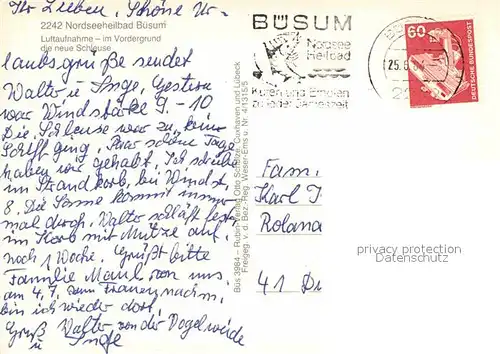 Ihr Lieben, Schöne Ur-
2242 Nordseeheilbad Büsum
Luftaufnahme – im Vordergrund
die neue Schleuse
laubsgrüße sendet
Walter u. Inge, Gestern
war Windstärke 9-10
Die Schleuse war zu, kein
Schiff ging. Paar schöne Tage
haben wir gehabt. Ich schreibe
im Strandkorb, bei Windst.
8. Die Sonne kommt imm
mal durch. Walter schläft fest
im Korb mit Mütze auf.
noch 1 Woche. Grüßt bitte
Familie Maul von uns
am 4.7. zum Frauennachm.
bin ich wieder dort.
Gruß Walter, von der Vogelweide
u. Inge
Büs 3984 – Rubin-Verlag Otto Schulze, Cuxhaven und Lübeck
Freigeg. v. d. Bez.-Reg. Weser-Ems u. Nr. 41315/5
BÜSUM
Nordsee
heilbad
Kuren und Erholen
zu jeder Jahreszeit
25.6
60
DEUTSCHE BUNDESPOST
Fam.
Karl J
Roland
41 Du
privacy protection
Datenschutz